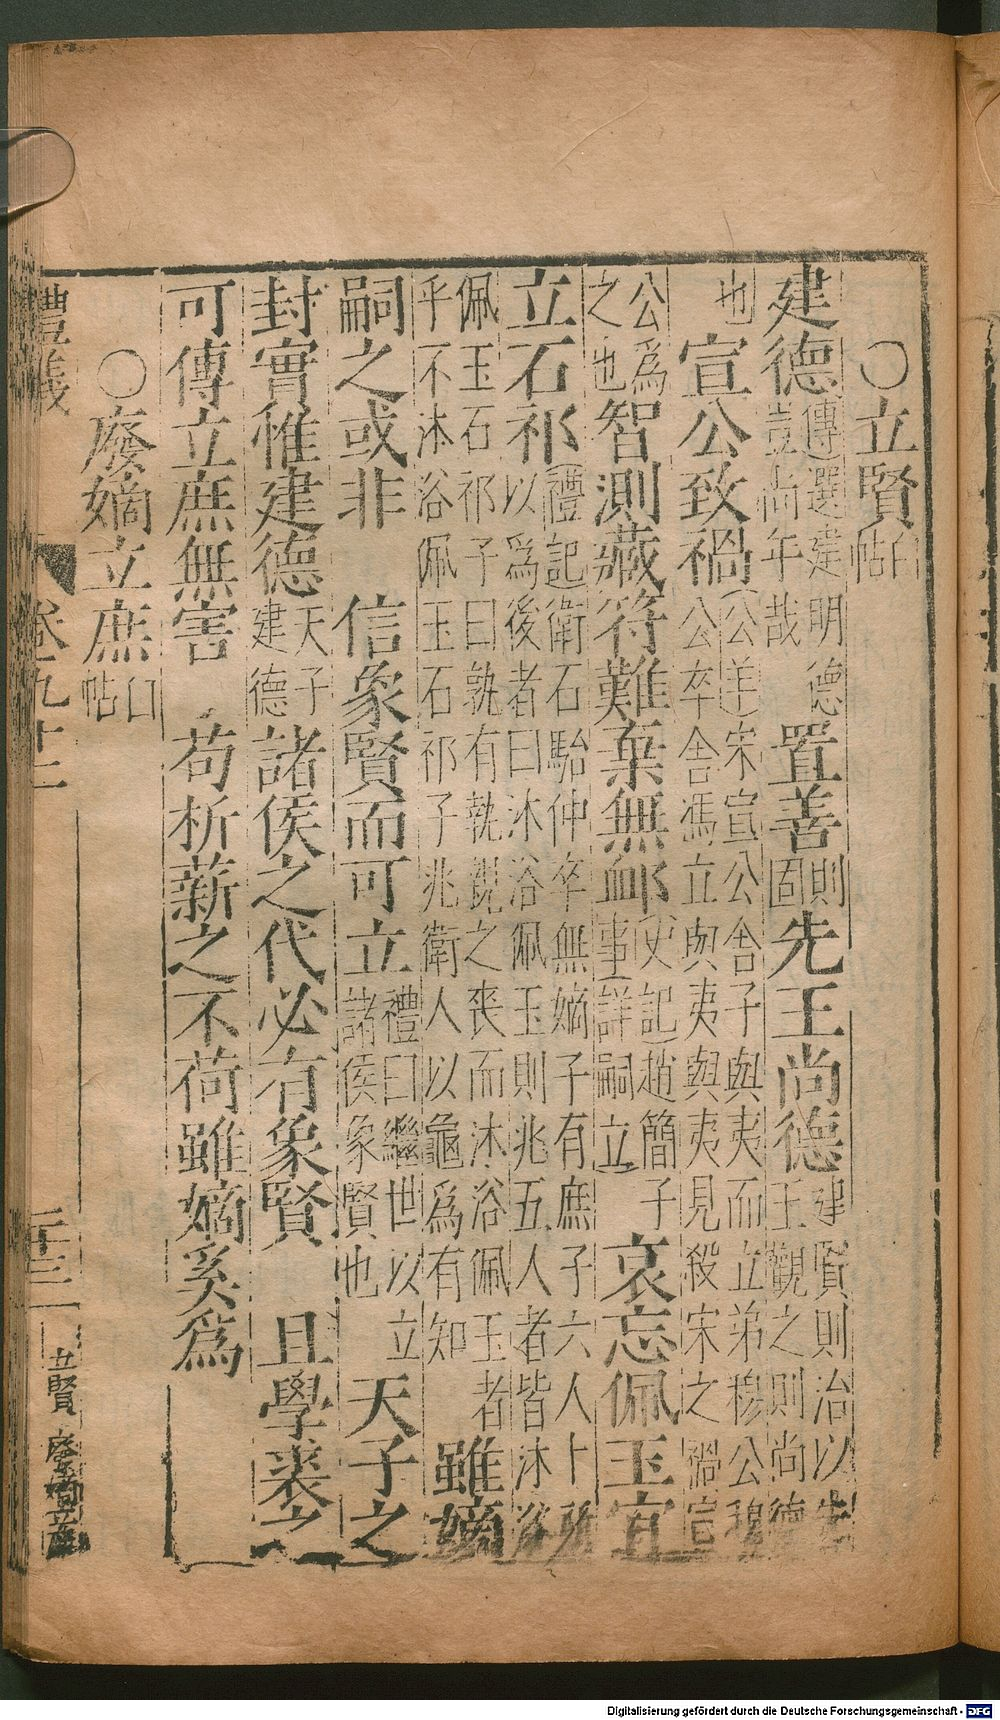 ○立賢白帖
建德傳選建明德豈尚年哉置善則固先王尚德建賢則治以先王觀之則尚德
也宣公致禍公羊宋宣公舍子與夷而立弟穆公穆公卒舍馮立與夷與夷見殺宋之禍宣
公為之也智測藏符難棄無卹史記趙簡子事詳嗣立哀忘佩玉宜
立石祁禮記衛石駘仲卒無嫡子有庶子六人卜所以為後者曰沐浴佩玉則兆五人者皆沐浴
佩玉石祁子曰孰有執親之喪而沐浴佩玉者乎不沐浴佩玉石祁子兆衛人以龜為有知雖嫡
嗣之或非信象賢而可立禮曰繼世以立諸侯象賢也天子之
封實惟建德天子建德諸侯之代必有象賢且學裘之
可傳立庶無害苟析薪之不荷雖嫡奚為
○廢嫡立庶白帖
禮義卷五十二二十三立賢廢嫡立庶
Digitalisierung gefördert durch die Deutsche Forschungsgemeinschaft - DFG